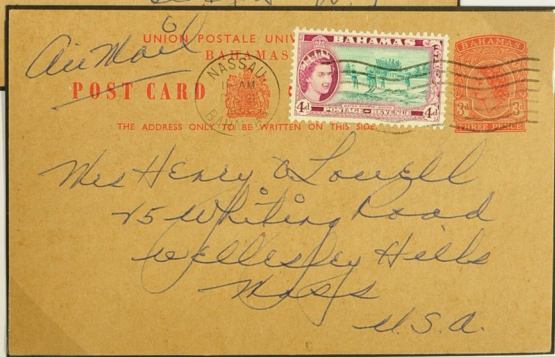 Air Mail
UNION POSTALE UNIV
BAHAMAS
POST CARD
THE ADDRESS ONLY TO BE WRITTEN ON THIS SIDE.
NASSAU
AM
BAHAMAS
4d POSTAGE REVENUE 4d
BAHAMAS
3d 3d
THREE PENCE
Mrs Henry O Lowell
75 Whiting Road
Wellesley Hills
Mass
U.S.A.